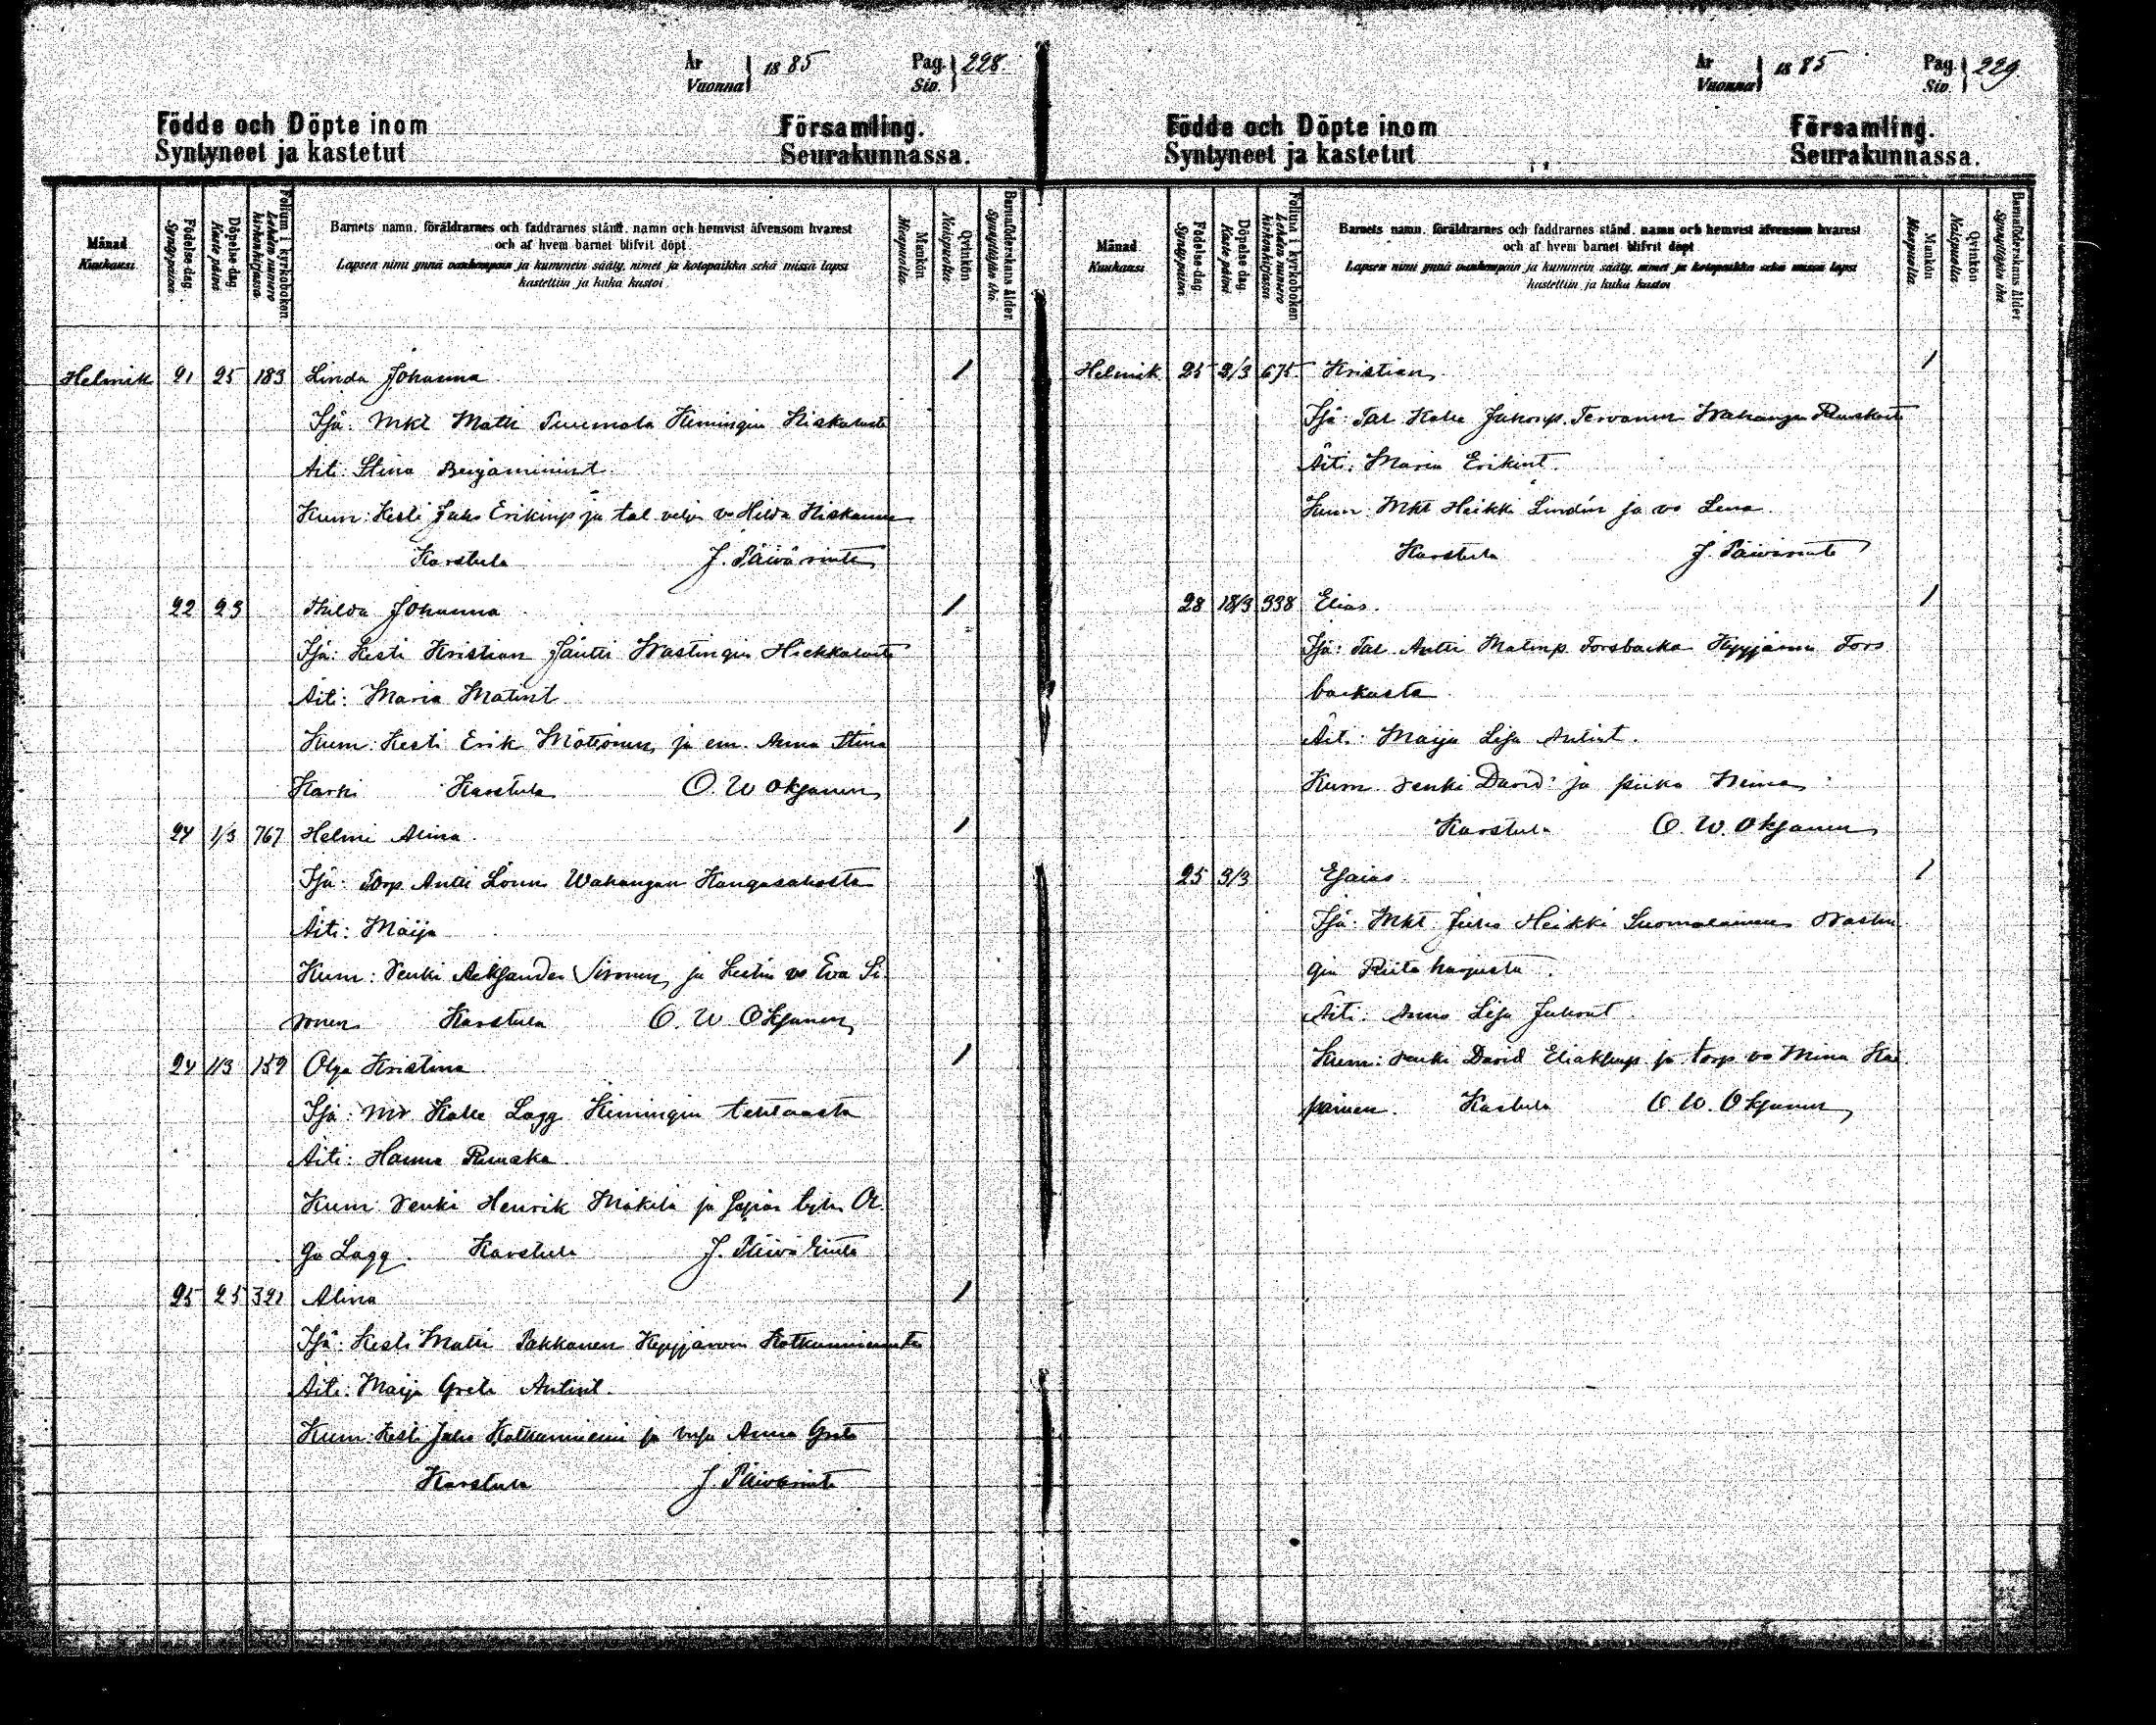 År
Vuonna } 1885
Pag.
Siv. } 228.
Födde och Döpte inom Församling.
Syntyneet ja kastetut Seurakunnassa.
Månad
Kuukausi
Födelse dag.
Syntypäivä
Döpelse dag
Kaste päivä
Folium i kyrkoboken
Lehden numero kirkonkirjassa.
Barnets namn, föräldrarnes och faddrarnes stånd, namn och hemvist äfvensom hvarest
och af hvem barnet blifvit döpt.
Lapsen nimi ynnä vanhempain ja kummein sääty, nimet ja kotopaikka sekä missä lapsi
kastettiin ja kuka kastoi
Mankön
Miespuolia
Qvinkön
Naispuolia
Barnaföderskans ålder.
Synnyttäjän ikä
Helmik 21 25 183 Linda Johanna 1
Isä: Mkt Matti Kimingin
Äiti: Stina Benjamint.
Kum: Kesti Juho Erikinp ja tal velj. vo Hilda Hiskanen
Karstula J. Päivärinta
22 23 Hilda Johanna 1
Isä: Kesti Kristian Jäntti Wastingin
Äiti: Maria Matint
Kum: Kesti Erik Mötönen ja em. Anna Stina
Karki Karstula O. W Oksanen
24 1/3 767 Helmi Alina 1
Isä: Torp. Antti Lönn Wahangan Kangasaholta
Äiti: Maija
Kum: Renki Aleksander Sironen ja Kestin vo Eva Si-
ronen Karstula O. W Oksanen
24 1/3 159 Olga Kristina 1
Isä: Kalle Lagg Kimingin tehtaasta
Äiti: Hanna Ruuska
Kum: Renki Henrik Mäkelä ja sepän tytär Ol-
ga Lagg. Karstula J. Päivärinta
25 25 321 Alina 1
Isä: Kesti Matti Pakkanen Kyyjärven
Äiti: Maija Greta Antint.
Kum: Kesti Juho Kotkanniemi ja Anna Greta
Karstula J. Päivärinta
År
Vuonna } 1885
Pag.
Siv. } 229.
Födde och Döpte inom Församling.
Syntyneet ja kastetut Seurakunnassa.
Månad
Kuukausi
Födelse dag.
Syntypäivä
Döpelse dag.
Kaste päivä
Folium i kyrkoboken
Lehden numero kirkonkirjassa.
Barnets namn, föräldrarnes och faddrarnes stånd, namn och hemvist äfvensom hvarest
och af hvem barnet blifvit döpt
Lapsen nimi ynnä vanhempain ja kummein sääty, nimet ja kotopaikka sekä missä lapsi
kastettiin ja kuka kastoi
Mankön
Miespuolia
Qvinkön
Naispuolia
Barnaföderskans ålder.
Synnyttäjän ikä
Helmik 25 2/3 675 Kristian 1
Isä: Tal Kalle Juhonp. Tervonen Wahangan
Äiti: Maria Erikint.
Kum: Mkt Heikki Lindin ja vo Lena
Karstula J. Päivärinta
28 18/3 338 Elias. 1
Isä: Tal Antti Matinp. Forsbacka Kyyjärven Fors
backasta
Äiti: Maija Lisa Antint.
Kum Renki David ja piika
Karstula O. W. Oksanen
25 3/3 Esaias 1
Isä: Mkt Juho Heikki Suomalainen Wastin
gin Riitaharjusta.
Äiti: Anna Lisa Juhont
Kum: Renki David ja torp. vo Mina Ka
painen. Karstula O. W. Oksanen